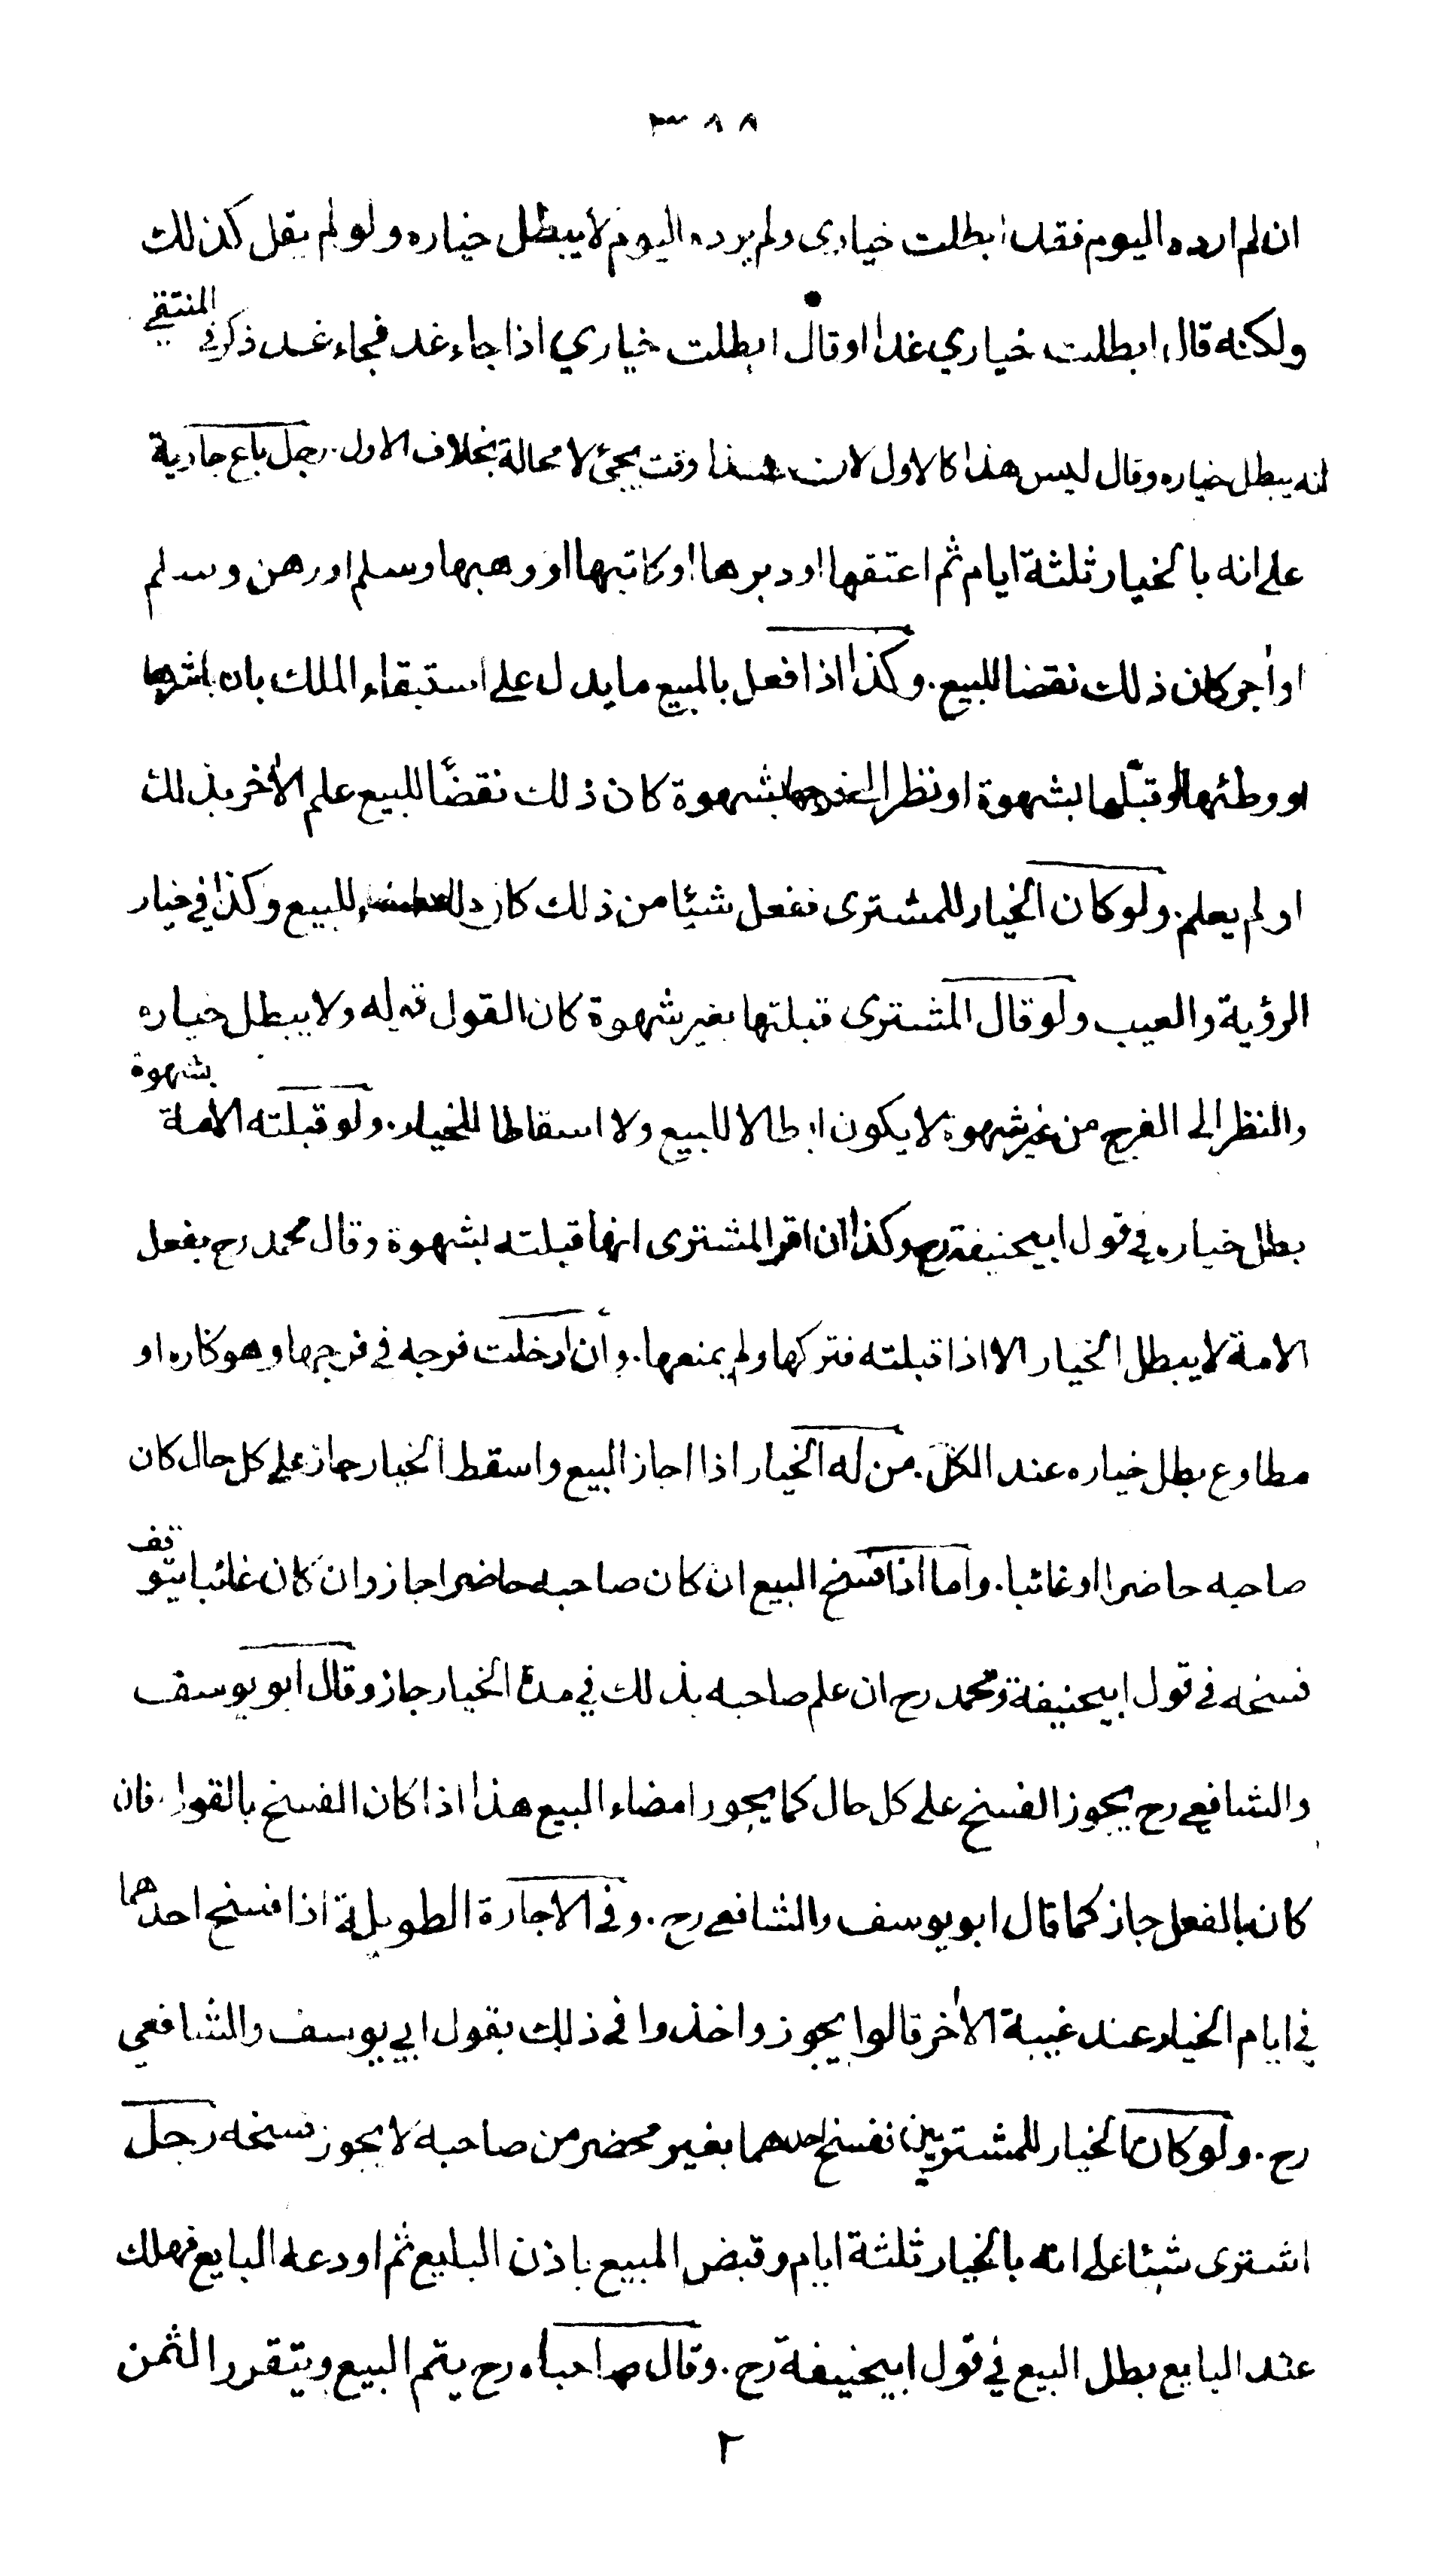 ٣٨٨
ان لم ارده اليوم فقد ابطلت خياري ولم يرده اليوم لا يبطل خياره ولو لم يقل كذلك
ولكنه قال ابطلت خياري غدا او قال ابطلت خياري اذا جاء غد فجاء غد ذكر في المنتقى
انه يبطل خياره وقال ليس هذا كالاول لان هذا وقت يجئ لا محالة بخلاف الاول. رجل باع جارية
على انه بالخيار ثلثة ايام ثم اعتقها او دبرها او كاتبها او وهبها وسلم او رهن وسلم
او آجر كان ذلك نقضا للبيع. وكذا اذا فعل بالمبيع ما يدل على استبقاء الملك بان باشرها
او وطئها او قبّلها بشهوة او نظر الى فرجها بشهوة كان ذلك نقضًا للبيع علم الآخر بذلك
او لم يعلم. ولو كان الخيار للمشترى ففعل شيئا من ذلك كان للبيع وكذا في خيار
الرؤية والعيب ولو قال المشترى قبلتها بغير شهوة كان القول قوله ولا يبطل خياره
والنظر الى الفرج من غير شهوة لا يكون ابطالا للبيع ولا اسقاطا للخيار. ولو قبلته الامة بشهوة
بطل خياره في قول ابيحنيفة رح وكذا ان اقر المشترى انها قبلته بشهوة وقال محمد رح بفعل
الامة لا يبطل الخيار الا اذا قبلته فتركها ولم يمنعها. وان ادخلت فرجه في فرجها وهو كاره او
مطاوع بطل خياره عند الكل. من له الخيار اذا اجاز البيع واسقط الخيار جاز على كل حال كان
صاحبه حاضرا او غائبا. واما اذا فسخ البيع ان كان صاحبه حاضرا جاز وان كان غائبا يتوقف
فسخه في قول ابيحنيفة ومحمد رح ان علم صاحبه بذلك في مدة الخيار جاز وقال ابو يوسف
والشافعي رح يجوز الفسخ على كل حال كما يجوز امضاء البيع هذا اذا كان الفسخ بالقول. فان
كان بالفعل جاز كما قال ابو يوسف والشافعي رح. وفي الاجارة الطويلة اذا فسخ احدهما
في ايام الخيار عند غيبة الآخر قالوا يجوز واخذوا في ذلك بقول ابي يوسف والشافعي
رح. ولو كان الخيار للمشتريين نفسخ احدهما بغير محضر من صاحبه لا يجوز فسخه رجل
اشترى شيئا على انه بالخيار ثلثة ايام وقبض المبيع باذن البايع ثم اودعه البايع فهلك
عند البايع بطل البيع في قول ابيحنيفة رح. وقال صاحباه رح يتم البيع ويتقرر الثمن
٢